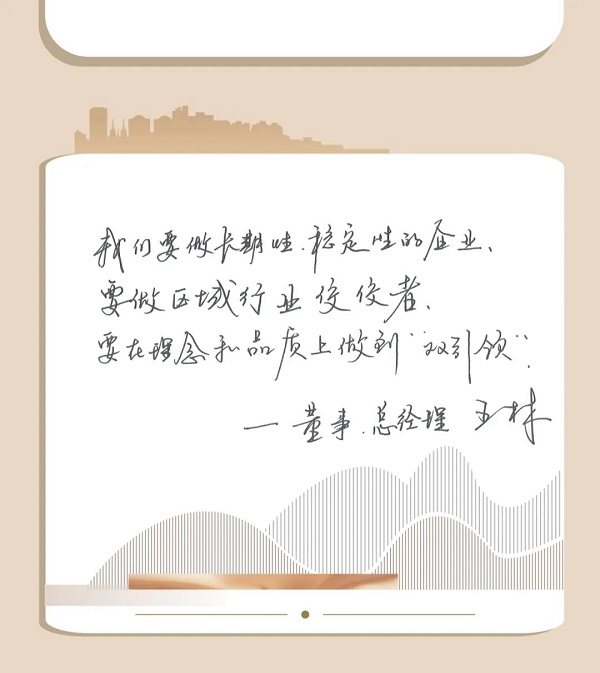 我们要做长期性、稳定性的企业、
要做区域行业佼佼者、
要在理念和品质上做到“双引领”.
— 董事.总经理 王林